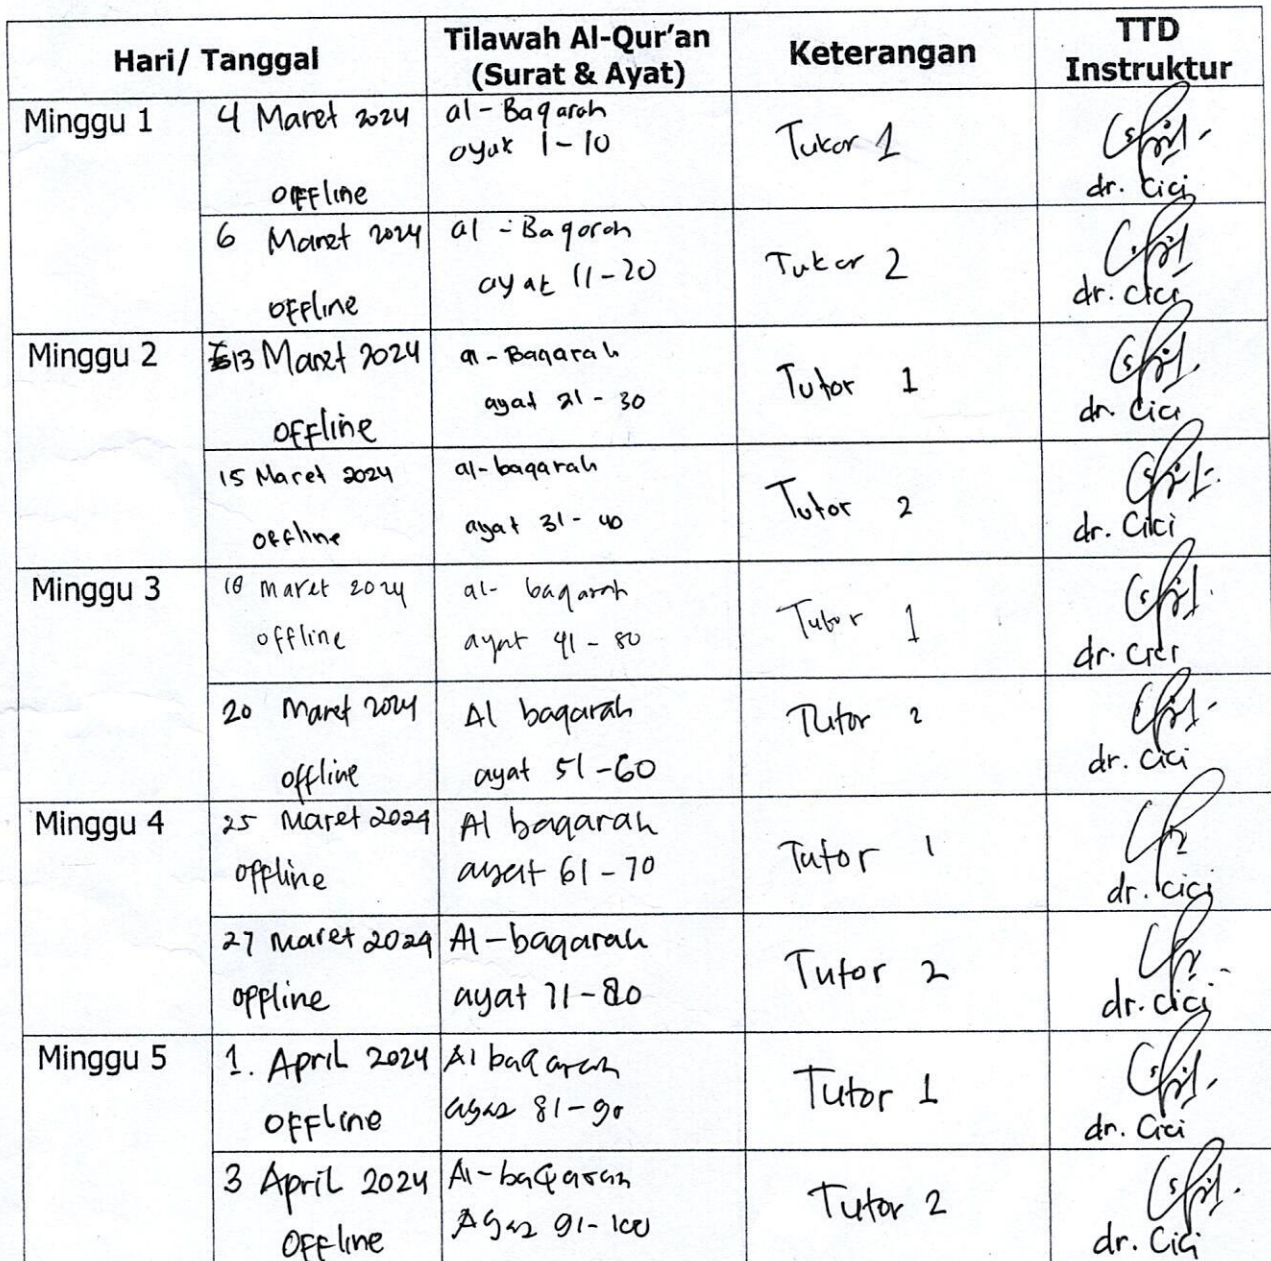 Hari/ Tanggal
Tilawah Al-Qur'an
(Surat & Ayat)
Keterangan
TTD
Instruktur
Minggu 1
4 Maret 2024
offline
al-Baqarah
ayat 1-10
Tutor 1
dr. Cici
6 Maret 2024
offline
al-Baqarah
ayat 11-20
Tutor 2
dr. Cici
Minggu 2
13 Maret 2024
offline
al-Baqarah
ayat 21-30
Tutor 1
dr. Cici
15 Maret 2024
offline
al-baqarah
ayat 31-40
Tutor 2
dr. Cici
Minggu 3
18 Maret 2024
offline
al-baqarah
ayat 41-50
Tutor 1
dr. Cici
20 Maret 2024
offline
Al baqarah
ayat 51-60
Tutor 2
dr. Cici
Minggu 4
25 Maret 2024
offline
Al baqarah
ayat 61-70
Tutor 1
dr. Cici
27 Maret 2024
offline
Al-baqarah
ayat 71-80
Tutor 2
dr. Cici
Minggu 5
1. April 2024
offline
Al baqarah
ayat 81-90
Tutor 1
dr. Cici
3 April 2024
offline
Al-baqarah
Ayat 91-100
Tutor 2
dr. Cici